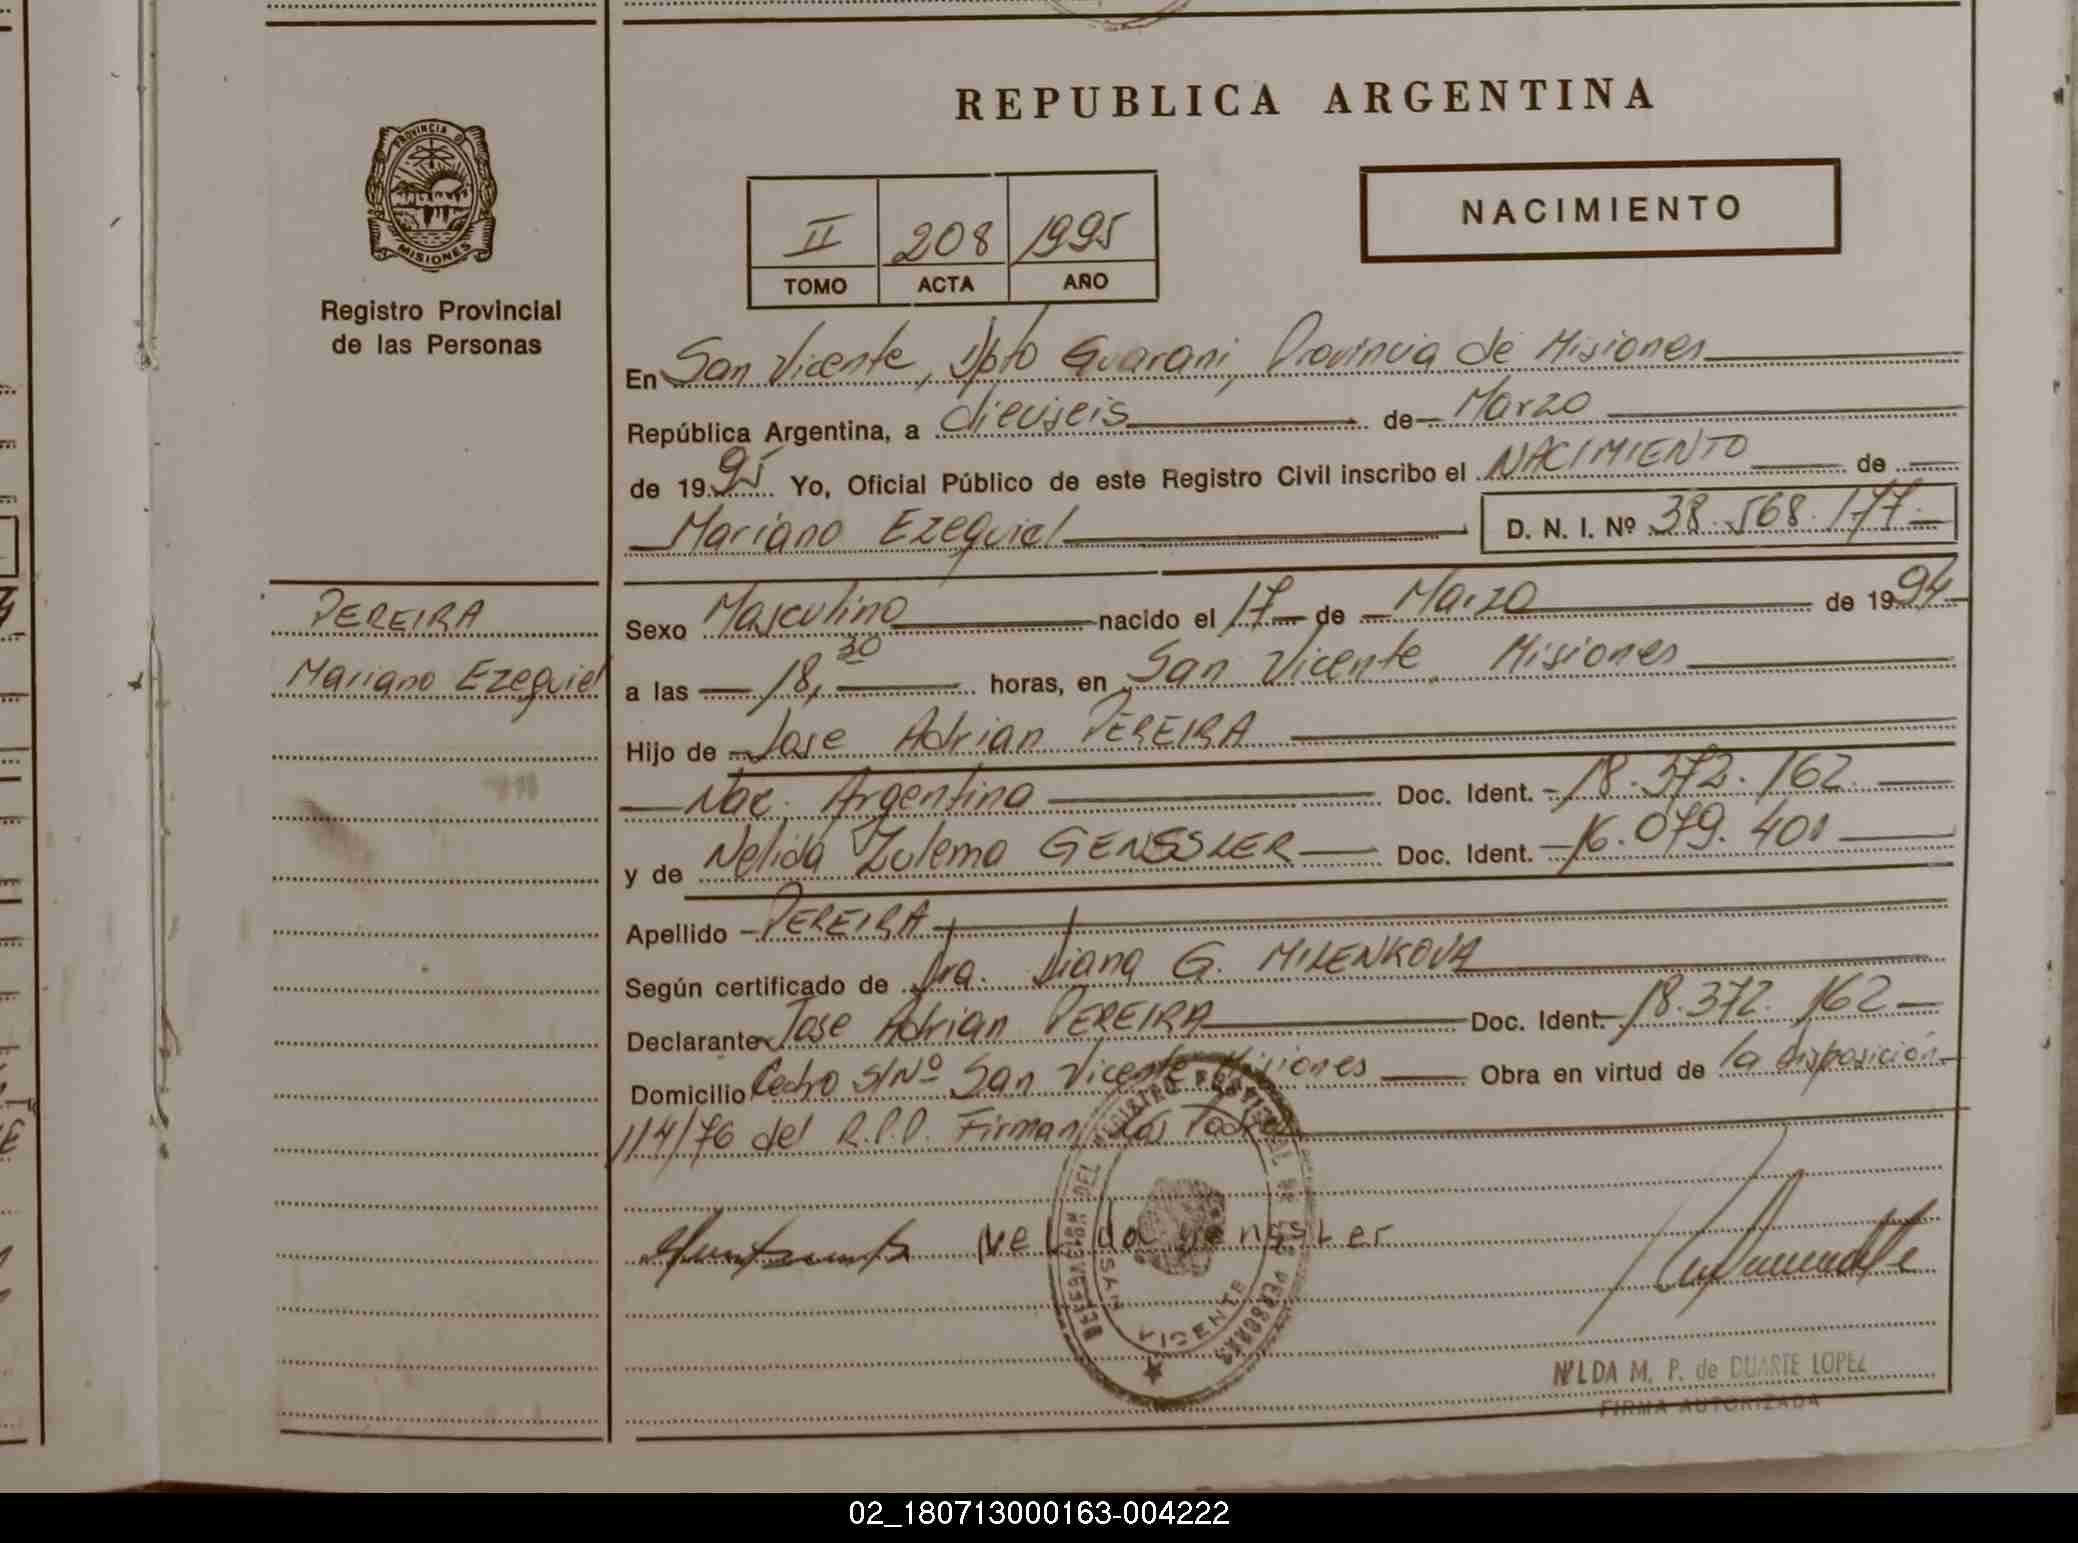 REPUBLICA ARGENTINA
PROVINCIA DE
MISIONES
Registro Provincial
de las Personas
II 208 1995
TOMO ACTA AÑO
NACIMIENTO
En San Vicente, Dpto Guarani, Provincia de Misiones
República Argentina, a dieciseis de Marzo
de 1995 Yo, Oficial Público de este Registro Civil inscribo el NACIMIENTO de
Mariano Ezequiel D. N. I. Nº 38.568.177
PEREIRA
Mariano Ezequiel
Sexo Masculino nacido el 17 de Marzo de 1994
a las 18,30 horas, en San Vicente Misiones
Hijo de Jose Adrian PEREIRA
Nac. Argentina Doc. Ident. 18.372.162
y de Nelida Zulema GENSSLER Doc. Ident. 16.079.401
Apellido PEREIRA
Según certificado de Dra. Diana G. MILENKOVA
Declarante Jose Adrian PEREIRA Doc. Ident. 18.372.162
Domicilio Cedro S/Nº San Vicente Misiones Obra en virtud de la disposición
114/76 del R.P.P. Firman los Padres
Nelida genssler
DELEGACION DEL REGISTRO PROVINCIAL DE LAS PERSONAS
SAN VICENTE
NILDA M. P. de DUARTE LOPEZ
FIRMA AUTORIZADA
02_180713000163-004222